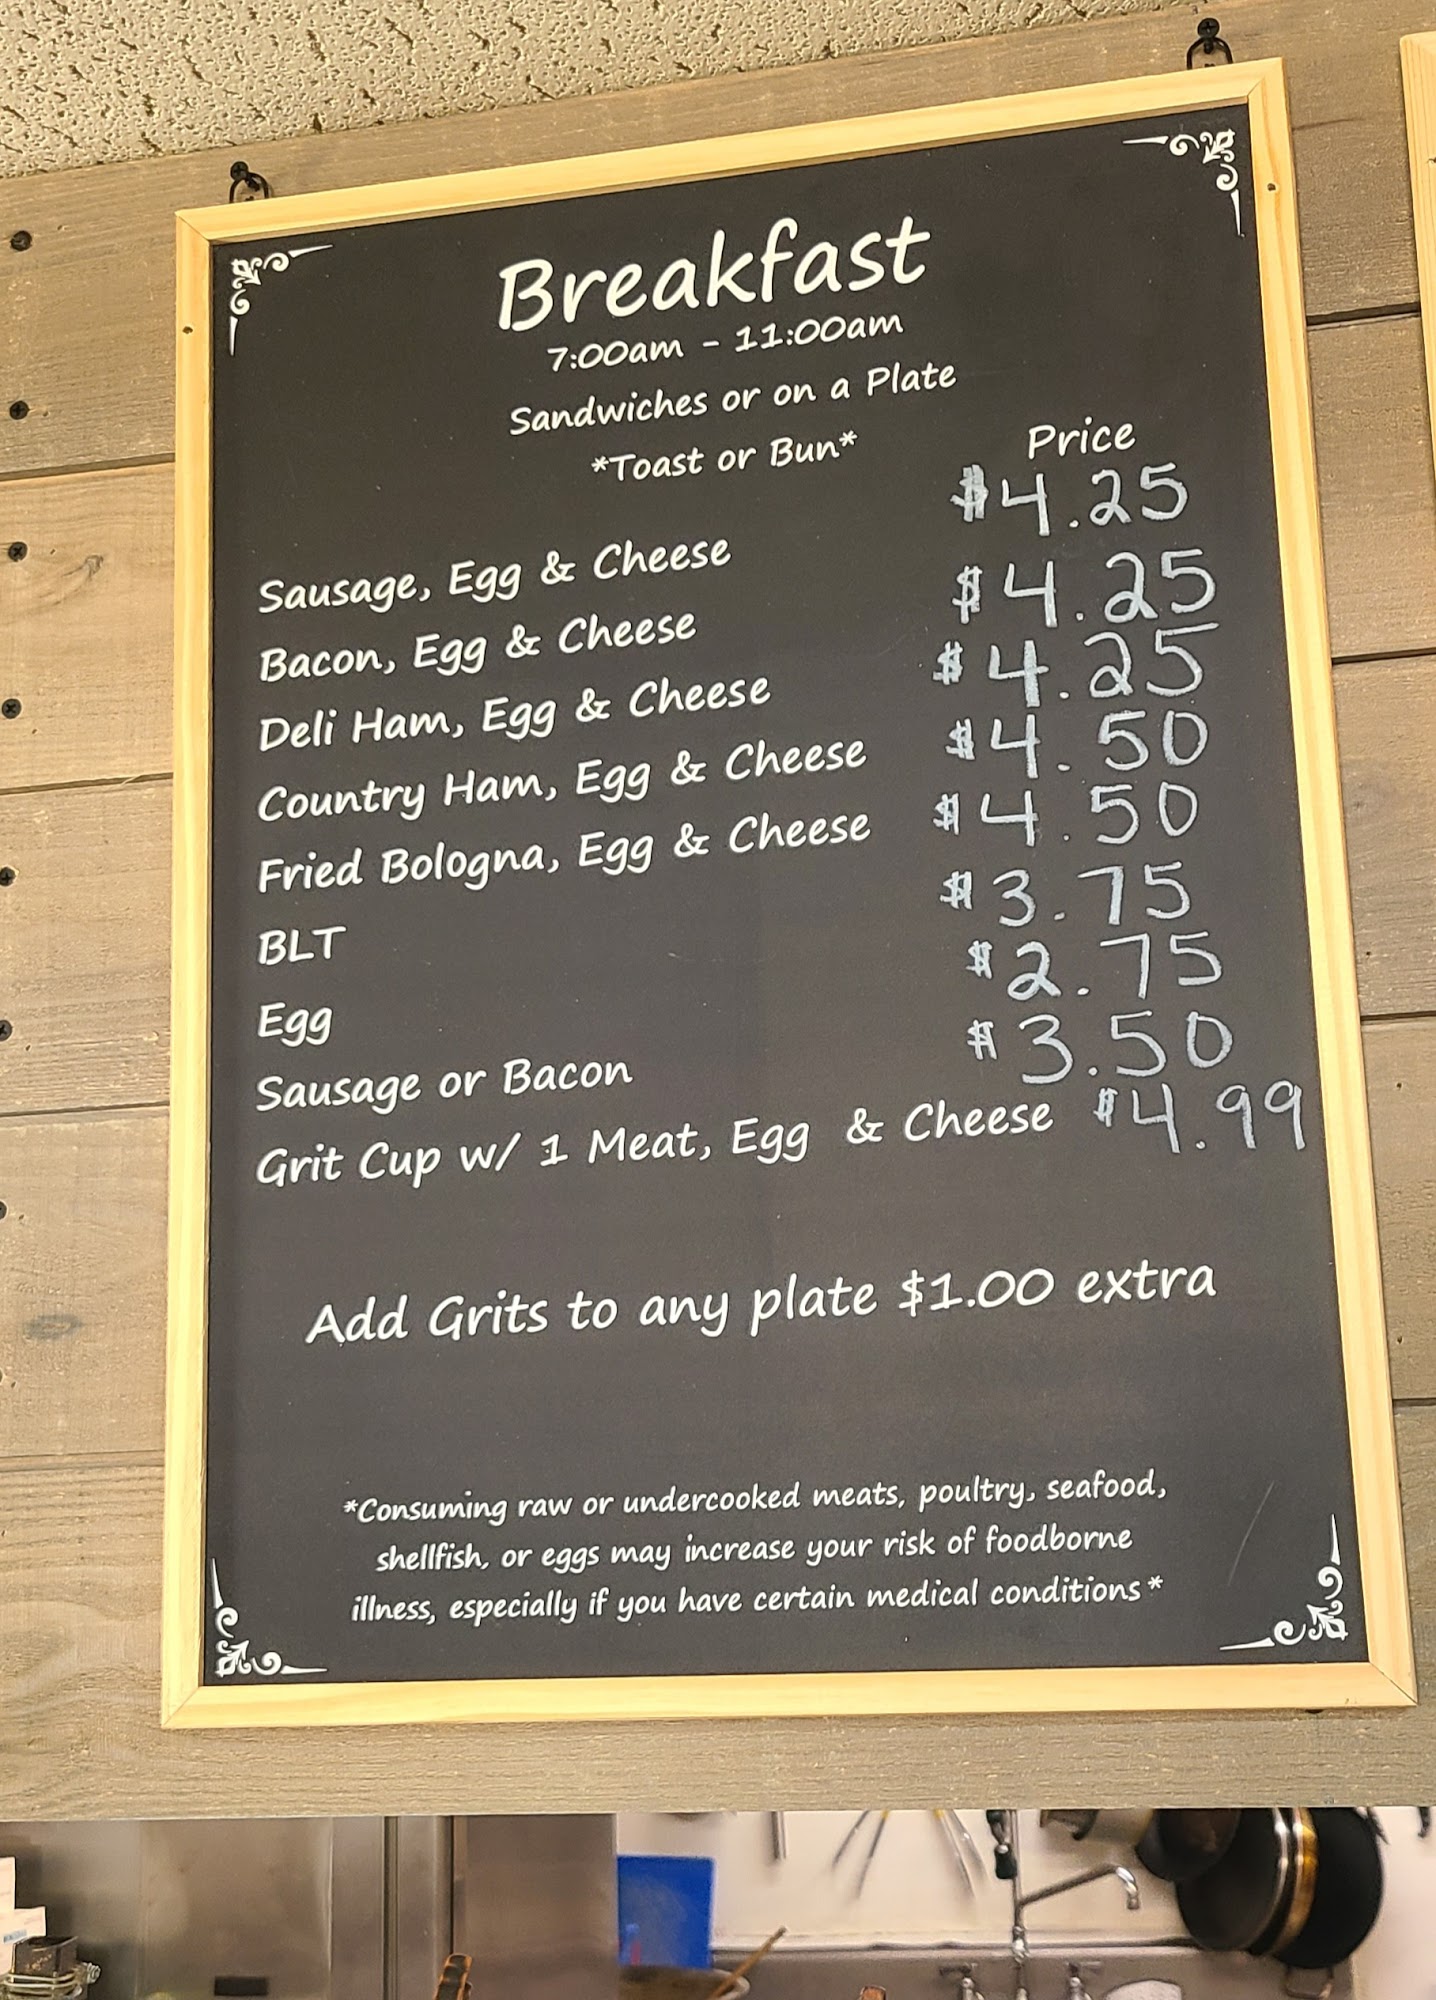 Breakfast
7:00am - 11:00am
Sandwiches or on a Plate
*Toast or Bun*
Price
Sausage, Egg & Cheese $4.25
Bacon, Egg & Cheese $4.25
Deli Ham, Egg & Cheese $4.25
Country Ham, Egg & Cheese $4.50
Fried Bologna, Egg & Cheese $4.50
BLT $3.75
Egg $2.75
Sausage or Bacon $3.50
Grit Cup w/ 1 Meat, Egg & Cheese $4.99
Add Grits to any plate $1.00 extra
*Consuming raw or undercooked meats, poultry, seafood,
shellfish, or eggs may increase your risk of foodborne
illness, especially if you have certain medical conditions*